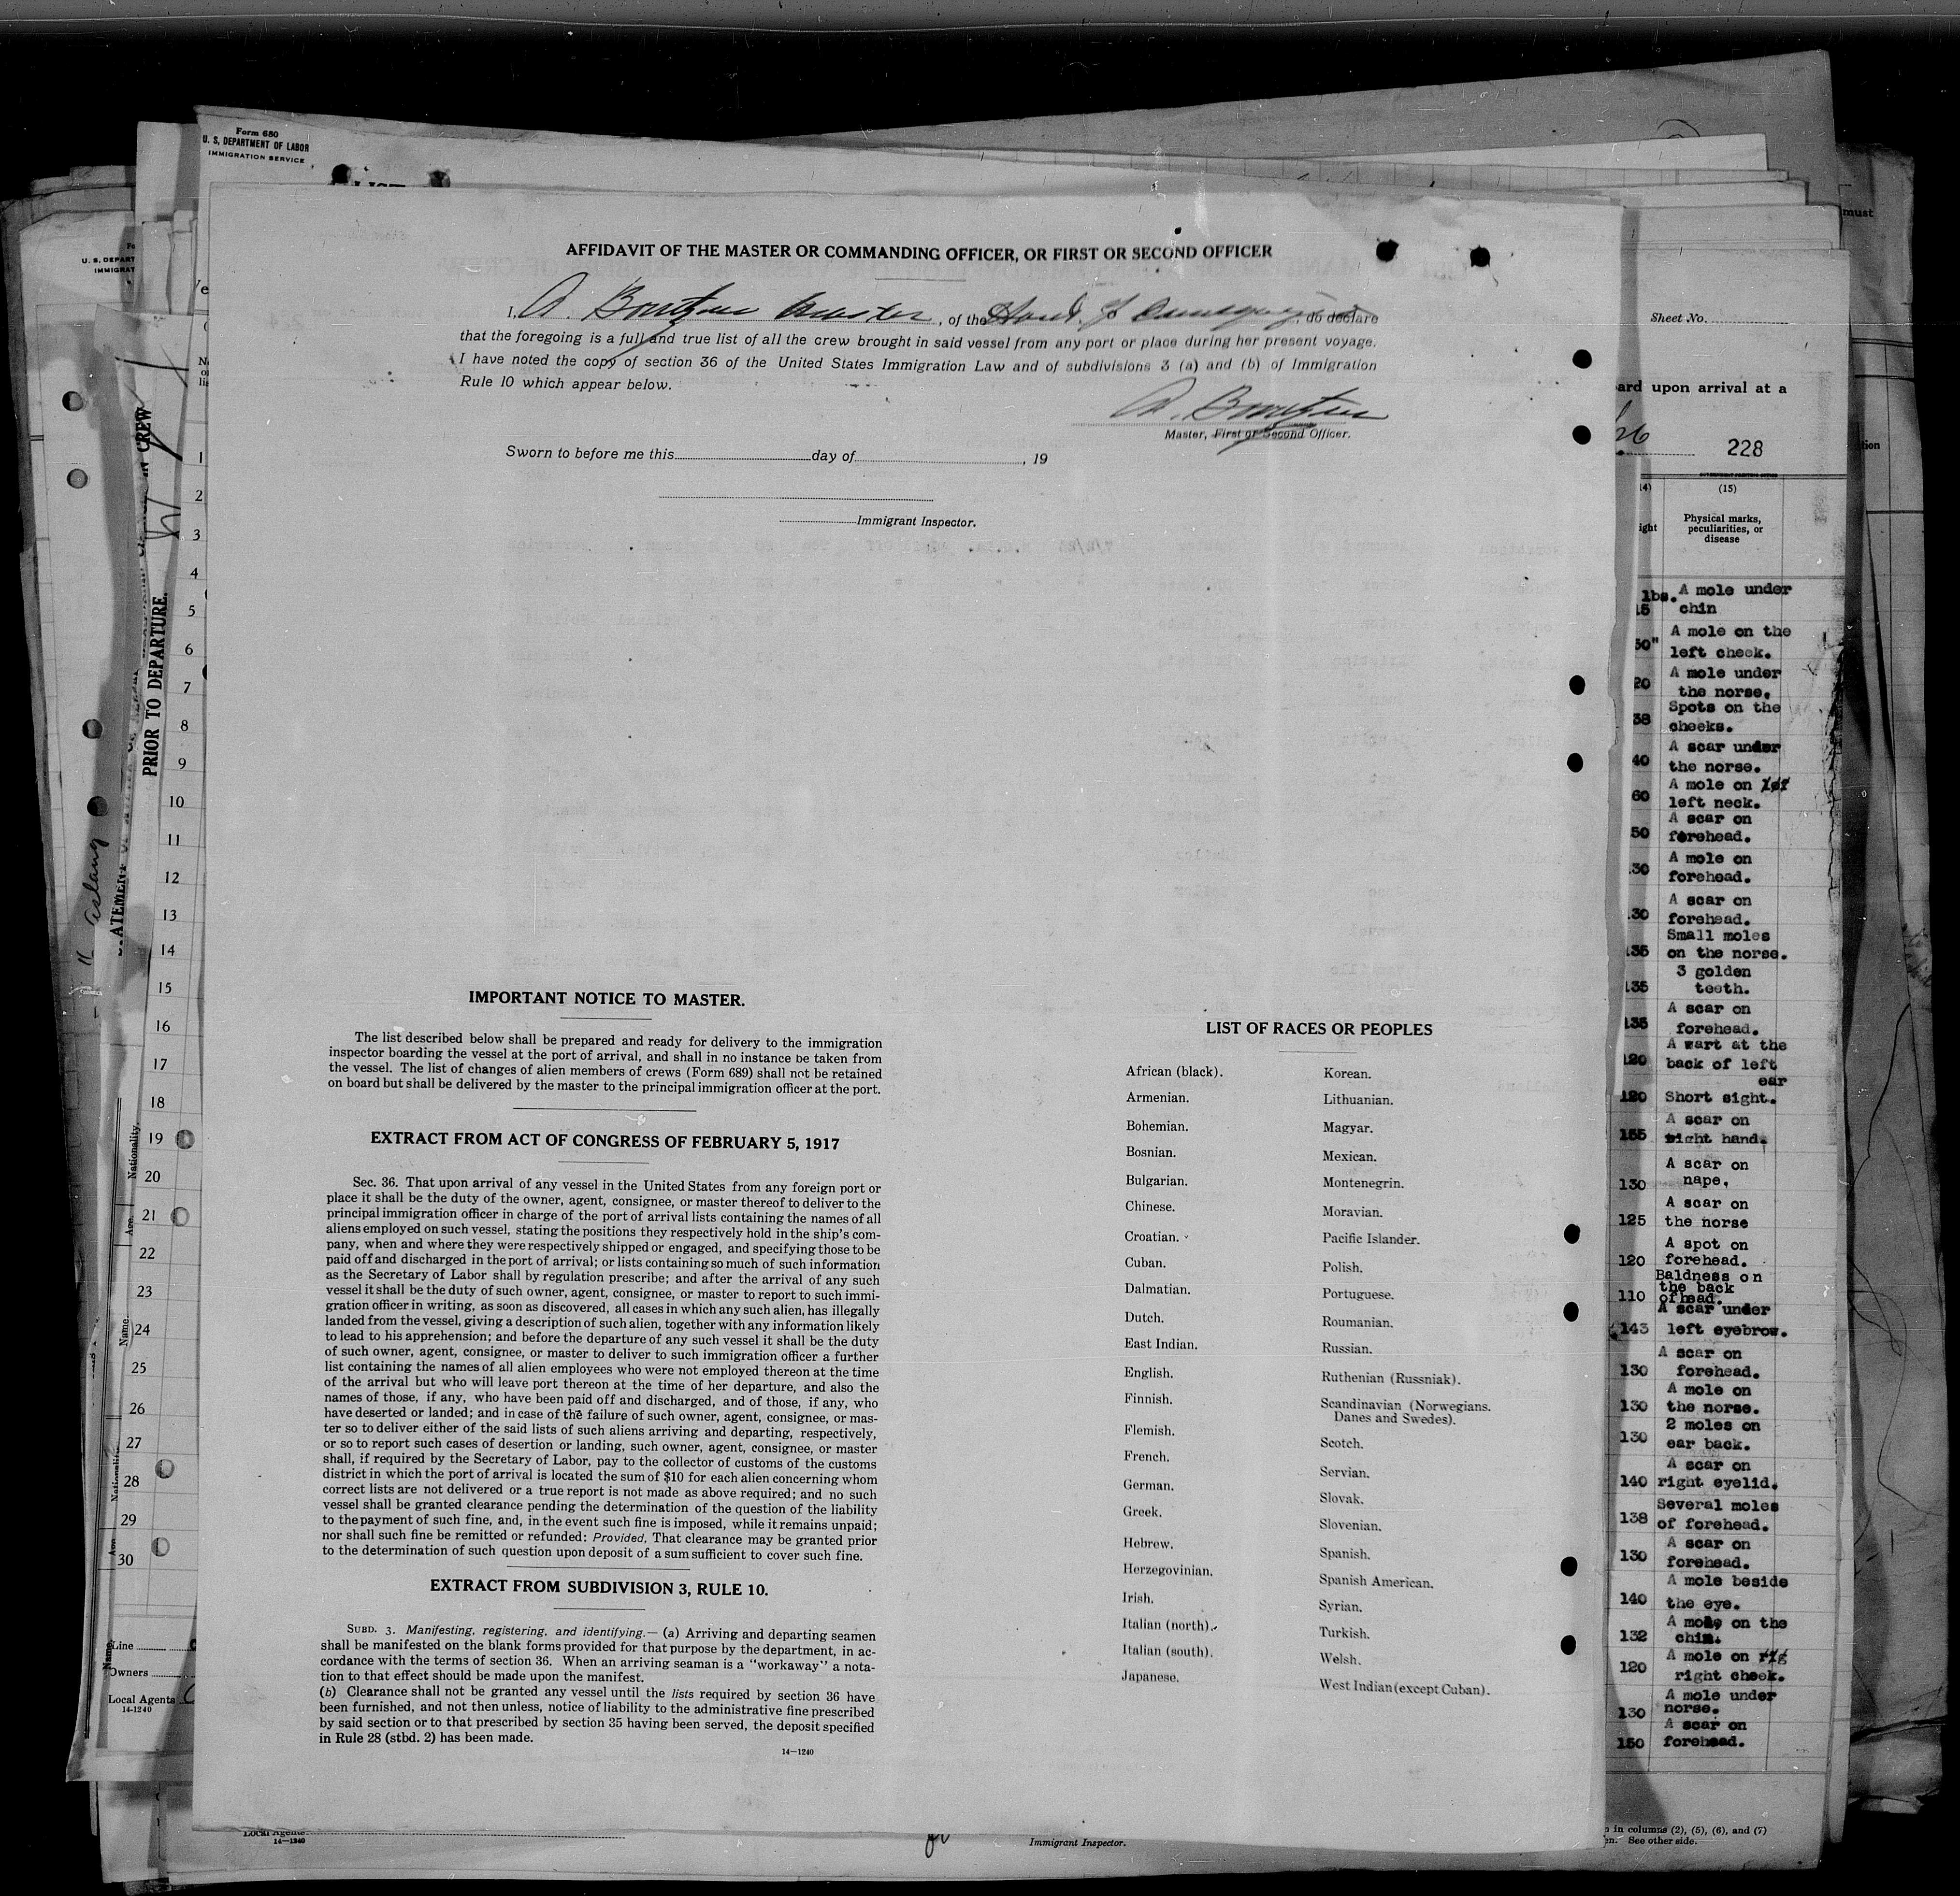 Form 680
U. S. DEPARTMENT OF LABOR
IMMIGRATION SERVICE
AFFIDAVIT OF THE MASTER OR COMMANDING OFFICER, OR FIRST OR SECOND OFFICER
I, A. , of the , do declare
that the foregoing is a full and true list of all the crew brought in said vessel from any port or place during her present voyage.
I have noted the copy of section 36 of the United States Immigration Law and of subdivisions 3 (a) and (b) of Immigration
Rule 10 which appear below.
Master, First or Second Officer.
Sworn to before me this day of , 19
Immigrant Inspector.
IMPORTANT NOTICE TO MASTER.
The list described below shall be prepared and ready for delivery to the immigration
inspector boarding the vessel at the port of arrival, and shall in no instance be taken from
the vessel. The list of changes of alien members of crews (Form 689) shall not be retained
on board but shall be delivered by the master to the principal immigration officer at the port.
EXTRACT FROM ACT OF CONGRESS OF FEBRUARY 5, 1917
Sec. 36. That upon arrival of any vessel in the United States from any foreign port or
place it shall be the duty of the owner, agent, consignee, or master thereof to deliver to the
principal immigration officer in charge of the port of arrival lists containing the names of all
aliens employed on such vessel, stating the positions they respectively hold in the ship's com-
pany, when and where they were respectively shipped or engaged, and specifying those to be
paid off and discharged in the port of arrival; or lists containing so much of such information
as the Secretary of Labor shall by regulation prescribe; and after the arrival of any such
vessel it shall be the duty of such owner, agent, consignee, or master to report to such immi-
gration officer in writing, as soon as discovered, all cases in which any such alien, has illegally
landed from the vessel, giving a description of such alien, together with any information likely
to lead to his apprehension; and before the departure of any such vessel it shall be the duty
of such owner, agent, consignee, or master to deliver to such immigration officer a further
list containing the names of all alien employees who were not employed thereon at the time
of the arrival but who will leave port thereon at the time of her departure, and also the
names of those, if any, who have been paid off and discharged, and of those, if any, who
have deserted or landed; and in case of the failure of such owner, agent, consignee, or mas-
ter so to deliver either of the said lists of such aliens arriving and departing, respectively,
or so to report such cases of desertion or landing, such owner, agent, consignee, or master
shall, if required by the Secretary of Labor, pay to the collector of customs of the customs
district in which the port of arrival is located the sum of $10 for each alien concerning whom
correct lists are not delivered or a true report is not made as above required; and no such
vessel shall be granted clearance pending the determination of the question of the liability
to the payment of such fine, and, in the event such fine is imposed, while it remains unpaid;
nor shall such fine be remitted or refunded: Provided, That clearance may be granted prior
to the determination of such question upon deposit of a sum sufficient to cover such fine.
EXTRACT FROM SUBDIVISION 3, RULE 10.
SUBD. 3. Manifesting, registering, and identifying.— (a) Arriving and departing seamen
shall be manifested on the blank forms provided for that purpose by the department, in ac-
cordance with the terms of section 36. When an arriving seaman is a "workaway" a nota-
tion to that effect should be made upon the manifest.
(b) Clearance shall not be granted any vessel until the lists required by section 36 have
been furnished, and not then unless, notice of liability to the administrative fine prescribed
by said section or to that prescribed by section 35 having been served, the deposit specified
in Rule 28 (stbd. 2) has been made.
14—1240
LIST OF RACES OR PEOPLES
African (black).
Armenian.
Bohemian.
Bosnian.
Bulgarian.
Chinese.
Croatian.
Cuban.
Dalmatian.
Dutch.
East Indian.
English.
Finnish.
Flemish.
French.
German.
Greek.
Hebrew.
Herzegovinian.
Irish.
Italian (north).
Italian (south).
Japanese.
Korean.
Lithuanian.
Magyar.
Mexican.
Montenegrin.
Moravian.
Pacific Islander.
Polish.
Portuguese.
Roumanian.
Russian.
Ruthenian (Russniak).
Scandinavian (Norwegians.
Danes and Swedes).
Scotch.
Servian.
Slovak.
Slovenian.
Spanish.
Spanish American.
Syrian.
Turkish.
Welsh.
West Indian (except Cuban).
must
Sheet No.
ard upon arrival at a
26
228
(15)
Physical marks,
peculiarities, or
disease
lbs. A mole under
15 chin
50" A mole on the
left cheek.
20 A mole under
the norse.
38 Spots on the
cheeks.
40 A scar under
the norse.
60 A mole on
left neck.
50 A scar on
forehead.
30 A mole on
forehead.
30 A scar on
forehead.
135 Small moles
on the norse.
135 3 golden
teeth.
135 A scar on
forehead.
120 A wart at the
back of left
ear
120 Short sight.
155 A scar on
right hand.
130 A scar on
nape.
125 A scar on
the norse
120 A spot on
forehead.
110 Baldness on
the back
of head.
143 A scar under
left eyebrow.
130 A scar on
forehead.
130 A mole on
the norse.
130 2 moles on
ear back.
140 A scar on
right eyelid.
138 Several moles
of forehead.
130 A scar on
forehead.
140 A mole beside
the eye.
132 A mole on the
chin.
120 A mole on
right cheek.
130 A mole under
norse.
150 A scar on
forehead.
in columns (2), (5), (6), and (7)
See other side.
U. S. DEPART
IMMIGRAT
PRIOR TO DEPARTURE.
1
2
3
4
5
6
7
8
9
10
11
12
13
14
15
16
17
18
19
20
21
22
23
24
25
26
27
28
29
30
Nationality.
Age.
Name.
Line
Owners
Local Agents
14-1240
Local Agents
14—1240
Immigrant Inspector.